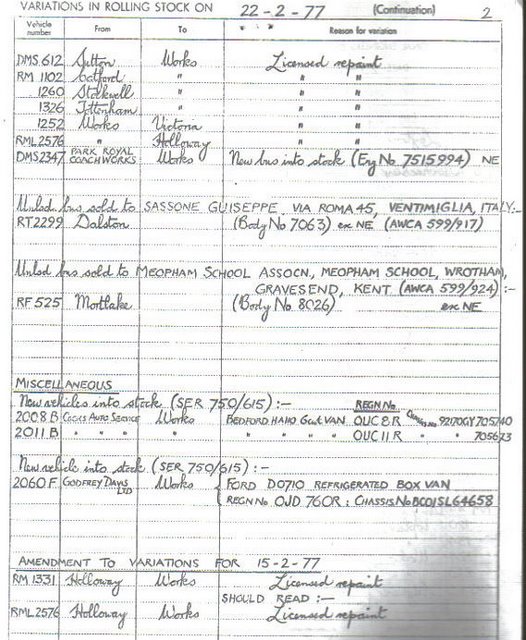 VARIATIONS IN ROLLING STOCK ON 22-2-77 (Continuation) 2
Vehicle number From To Reason for variation
DMS 612 Sutton Works Licensed repaint
RM 1102 Catford " " "
1260 Stockwell " " "
1326 Tottenham " " "
1252 Works Victoria " "
RML 2576 " Holloway " "
DMS2347 PARK ROYAL COACHWORKS Works New bus into stock (Eng No. 7515994) NE
Unlsd bus sold to SASSONE GUISEPPE, VIA ROMA 45, VENTIMIGLIA, ITALY:-
RT2299 Dalston (Body No 7063) ex NE (AWCA 599/917)
Unlsd bus sold to MEOPHAM SCHOOL ASSOCN, MEOPHAM SCHOOL, WROTHAM,
GRAVESEND, KENT (AWCA 599/924) :-
RF 525 Mortlake (Body No. 8026) ex NE
MISCELLANEOUS
New vehicles into stock (SER 750/615) :- REGN No
2008 B Works BEDFORD VAN OUC 8 R 705740
2011 B " " " " " " " " OUC 11 R " 705673
New vehicle into stock (SER 750/615) :-
2060 F GODFREY DAVIS LTD Works FORD DO710 REFRIGERATED BOX VAN
REGN No OJD 760R : CHASSIS No BCD1SL64658
AMENDMENT TO VARIATIONS FOR 15-2-77
RM 1331 Holloway Works Licensed repaint
SHOULD READ :-
RML 2576 Holloway Works Licensed repaint